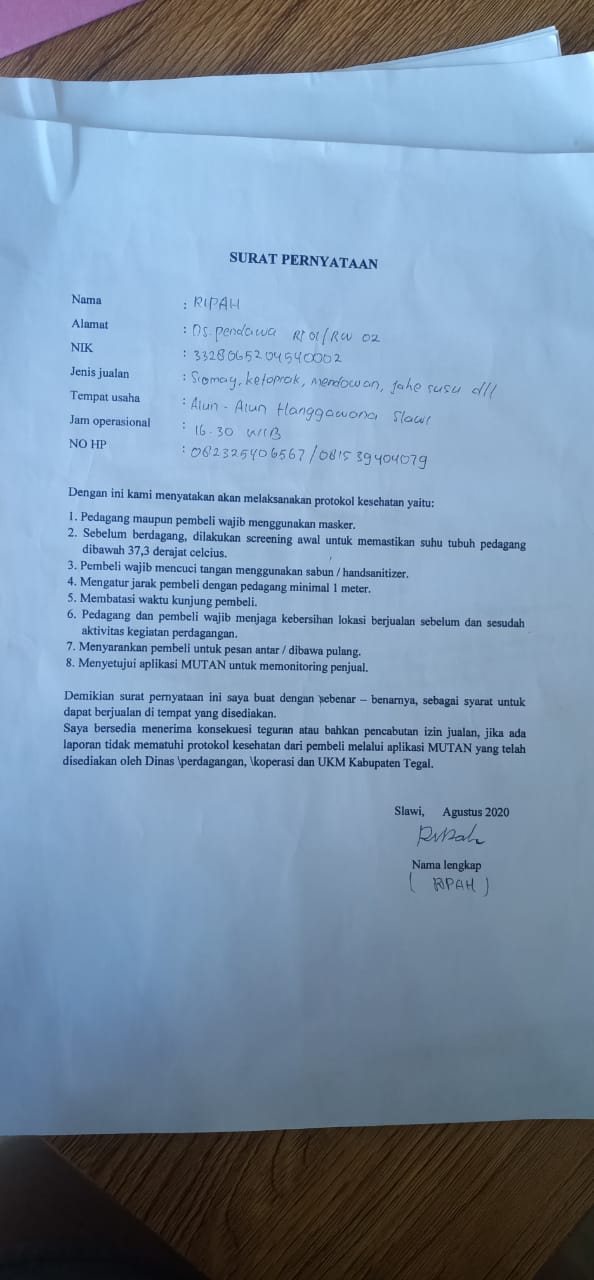 SURAT PERNYATAAN
Nama : RIPAH
Alamat : Ds. pendawa RT 01/RW 02
NIK : 3328065204540002
Jenis jualan : Siomay, ketoprak, mendowan, jahe susu dll
Tempat usaha : Alun - Alun Hanggawana Slawi
Jam operasional : 16.30 WIB
NO HP : 082325406567/081539404079
Dengan ini kami menyatakan akan melaksanakan protokol kesehatan yaitu:
1. Pedagang maupun pembeli wajib menggunakan masker.
2. Sebelum berdagang, dilakukan screening awal untuk memastikan suhu tubuh pedagang
dibawah 37,3 derajat celcius.
3. Pembeli wajib mencuci tangan menggunakan sabun / handsanitizer.
4. Mengatur jarak pembeli dengan pedagang minimal 1 meter.
5. Membatasi waktu kunjung pembeli.
6. Pedagang dan pembeli wajib menjaga kebersihan lokasi berjualan sebelum dan sesudah
aktivitas kegiatan perdagangan.
7. Menyarankan pembeli untuk pesan antar / dibawa pulang.
8. Menyetujui aplikasi MUTAN untuk memonitoring penjual.
Demikian surat pernyataan ini saya buat dengan sebenar – benarnya, sebagai syarat untuk
dapat berjualan di tempat yang disediakan.
Saya bersedia menerima konsekuesi teguran atau bahkan pencabutan izin jualan, jika ada
laporan tidak mematuhi protokol kesehatan dari pembeli melalui aplikasi MUTAN yang telah
disediakan oleh Dinas \perdagangan, \koperasi dan UKM Kabupaten Tegal.
Slawi, Agustus 2020
Ripah
Nama lengkap
( RIPAH )